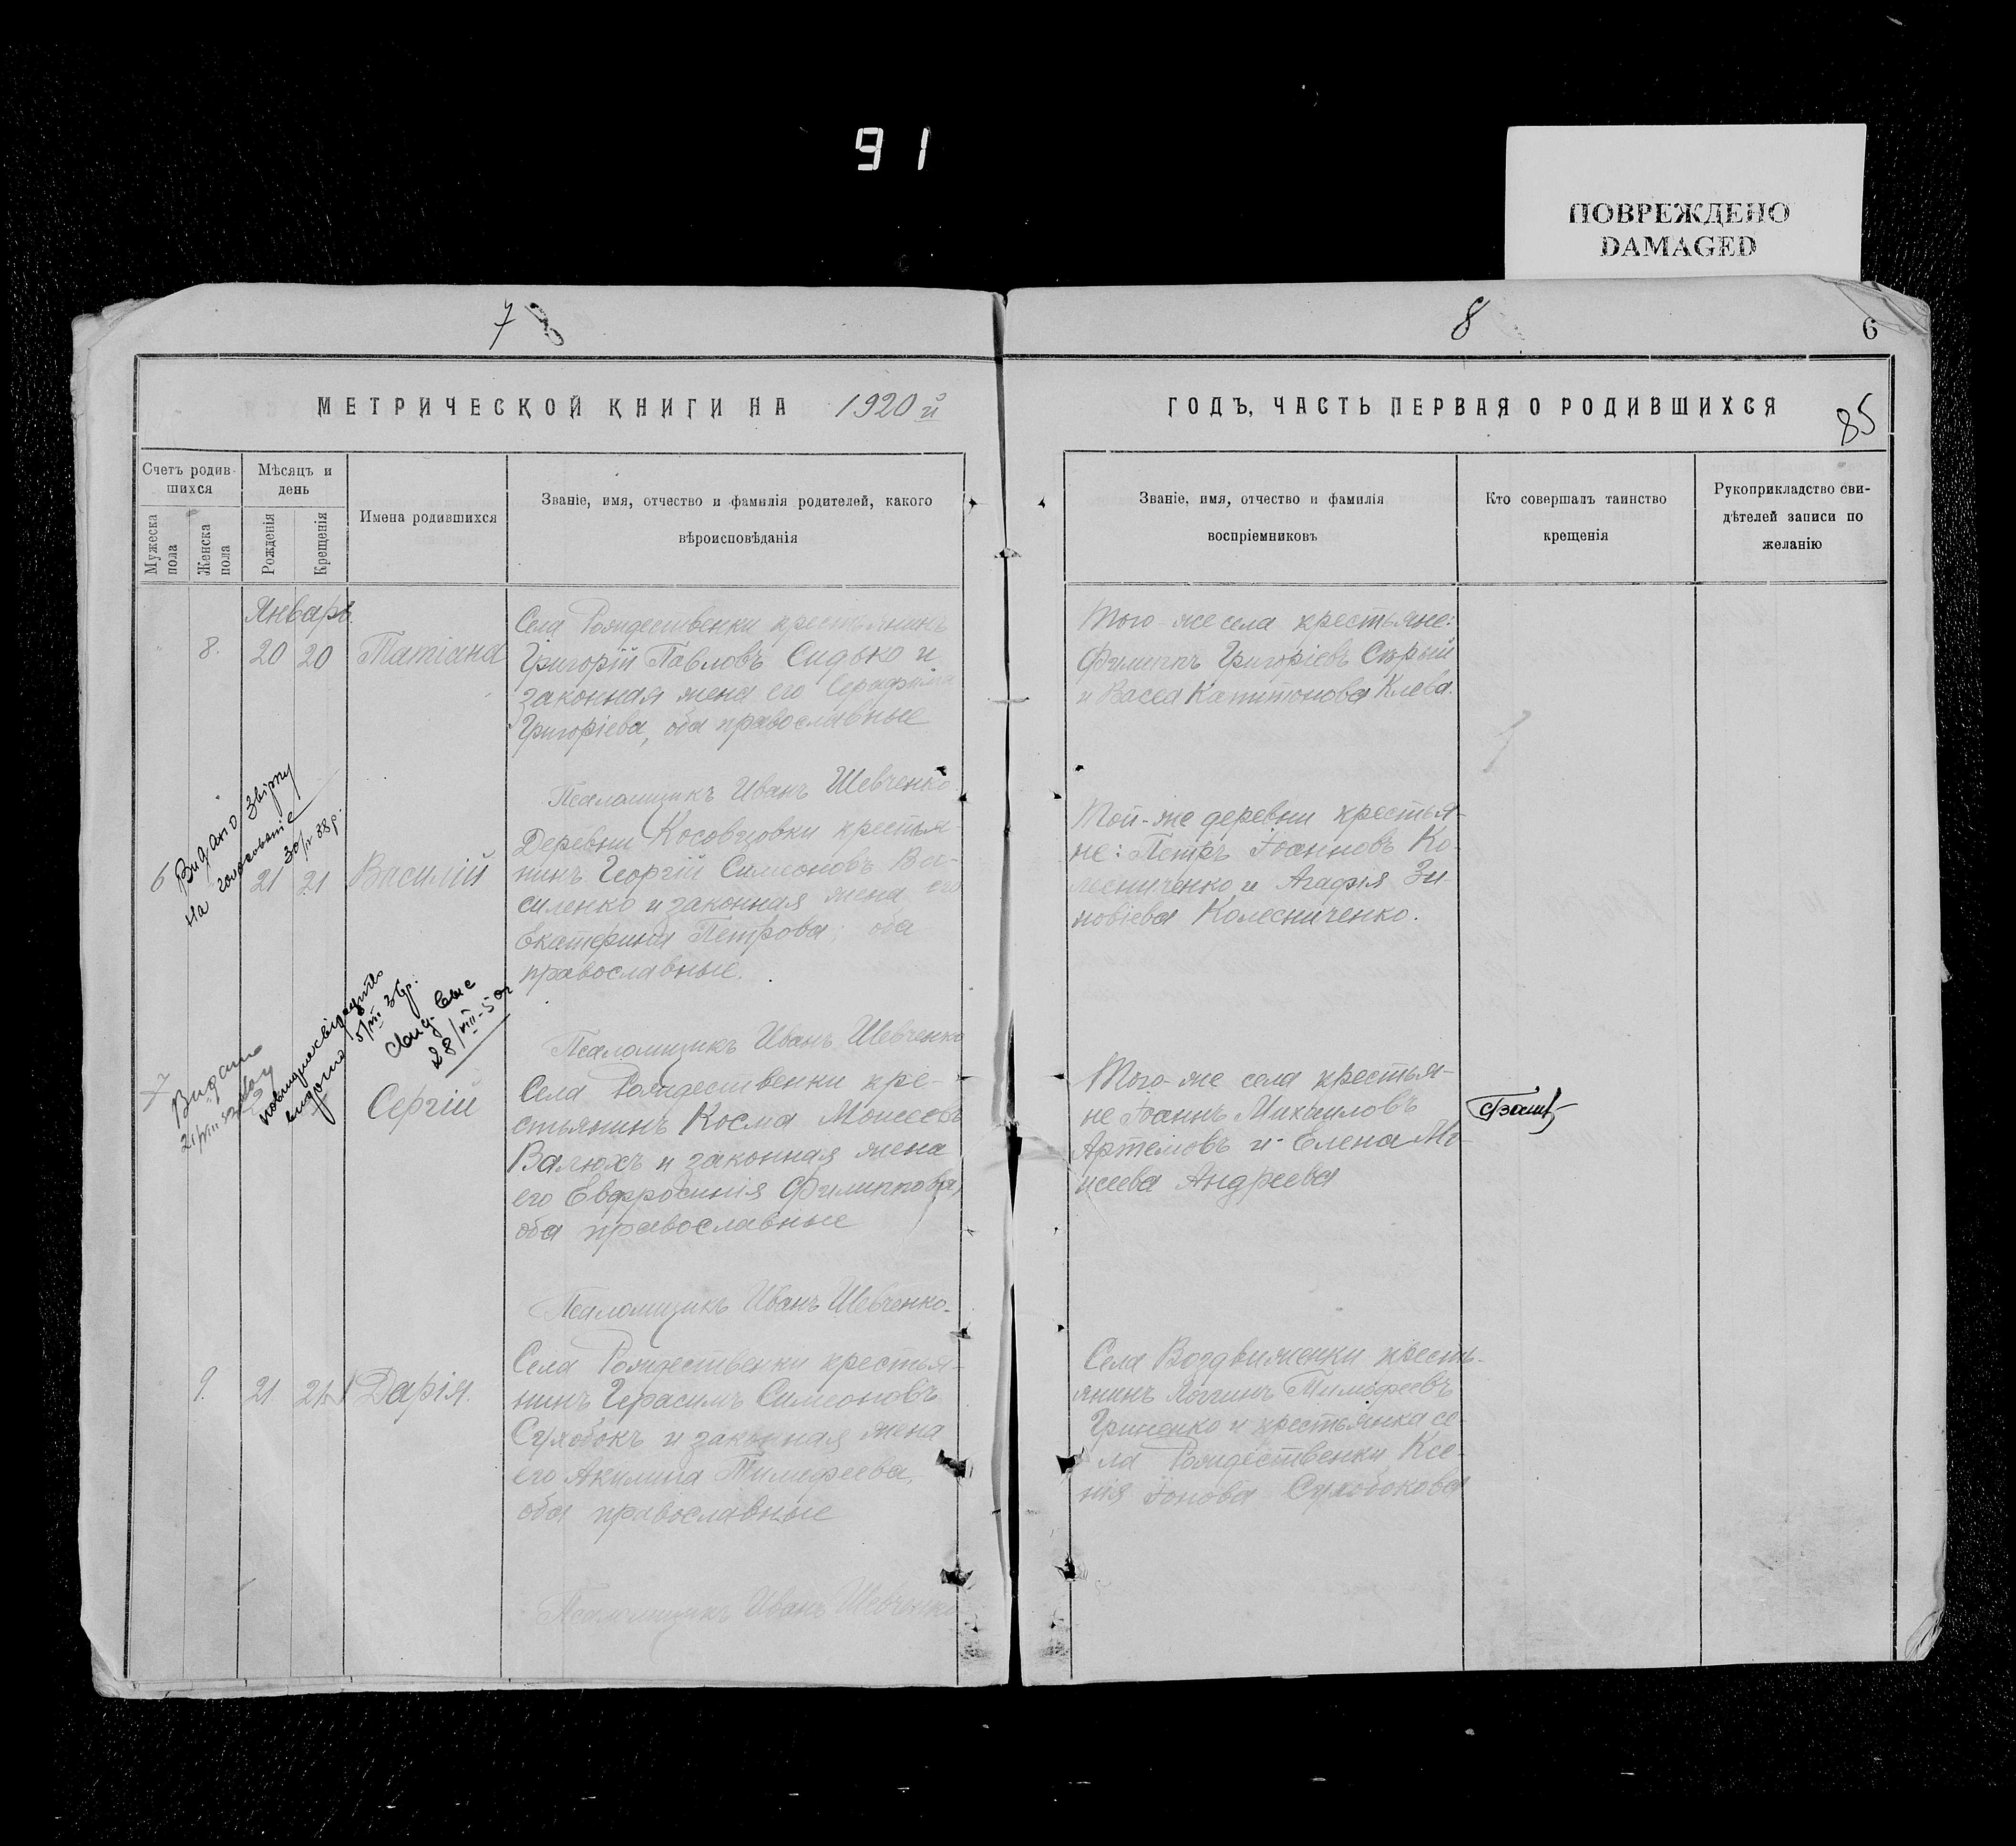 91
ПОВРЕЖДЕНО
DAMAGED
7
8
6
МЕТРИЧЕСКОЙ КНИГИ НА 1920й
ГОДЪ, ЧАСТЬ ПЕРВАЯ О РОДИВШИХСЯ
85
Счетъ родив-
шихся
Мужеска
пола
Женска
пола
Мѣсяцъ и
день
Рожденія
Крещенія
Имена родившихся
Званіе, имя, отчество и фамилія родителей, какого
вѣроисповѣданія
Званіе, имя, отчество и фамилія
воспріемниковъ
Кто совершалъ таинство
крещенія
Рукоприкладство сви-
дѣтелей записи по
желанію
Январь.
8. 20 20 Татіана
Села Рождественки крестьянинъ
Григорій Павловъ Сидько и
законная жена его Серафима
Григоріева, оба православные
Того-же села крестьяне:
Филиппъ Григоріевъ Сѣрый
и Васса Капитонова Клева.
Псаломщикъ Иванъ Шевченко.
Видано Звірку
на
30/ 38р.
6 21 21 Василій
Деревни Косовцовки крестья-
нинъ Георгій Симеоновъ Ва-
силенко и законная жена его
Екатерина Петрова; оба
православные.
Той-же деревни крестья-
не: Петръ Іоанновъ Ко-
лесниченко и Агафія Зи-
новіева Колесниченко.
Псаломщикъ Иванъ Шевченко
Видано
видано 5/VII 36р.
28/VIII-50г
7 Сергій
Села Рождественки кре-
стьянинъ Косма Моисеевъ
Валюхъ и законная жена
его Евфросинія Филиппова,
оба православные
Того-же села крестья-
не Іоаннъ Михаиловъ
Артемовъ и Елена Мо-
исеева Андреева
Псаломщикъ Иванъ Шевченко.
9. 21. 21. Дарія.
Села Рождественки крестья-
нинъ Герасимъ Симеоновъ
Сухобокъ и законная жена
его Акилина Тимофеева,
оба православные
Села Воздвиженки кресть-
янинъ Логгинъ Тимофеевъ
Гриненко и крестьянка се-
ла Рождественки Ксе-
нія Іонова Сухобокова
Псаломщикъ Иванъ Шевченко